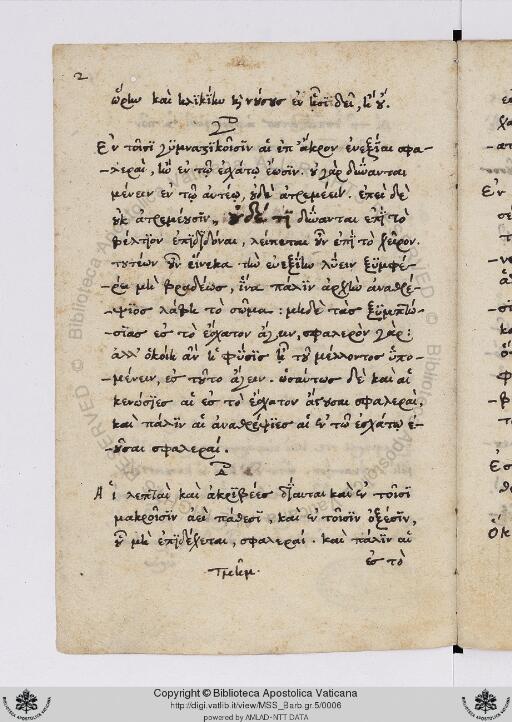 2
ὥρην καὶ ἡλικίην καὶ νόσους ἐν ᾗσι δεῖ, καὶ οὔ.
Γ
Ἐν τοῖσι γυμναστικοῖσιν αἱ ἐπ' ἄκρον εὐεξίαι σφα-
-λεραὶ, ἢν ἐν τῷ ἐσχάτῳ ἔωσιν. οὐ γὰρ δύνανται
μένειν ἐν τῷ αὐτέῳ, οὐδὲ ἀτρεμέειν. ἐπεὶ δὲ
οὐκ ἀτρεμεῦσιν, οὐδέ τι δύνανται ἐπὶ τὸ
βέλτιον ἐπιδιδόναι, λείπεται οὖν ἐπὶ τὸ χεῖρον.
τουτέων οὖν εἵνεκα τὴν εὐεξίην λύειν ξυμφέ-
-ρει μὴ βραδέως, ἵνα πάλιν ἀρχὴν ἀναθρέ-
-ψιος λάβῃ τὸ σῶμα: μηδὲ τὰς ξυμπτώ-
-σιας ἐς τὸ ἔσχατον ἄγειν, σφαλερὸν γάρ:
ἀλλ' ὁκοίη ἂν ἡ φύσις ᾖ τοῦ μέλλοντος ὑπο-
-μένειν, ἐς τοῦτο ἄγειν. ὡσαύτως δὲ καὶ αἱ
κενώσιες αἱ ἐς τὸ ἔσχατον ἄγουσαι σφαλεραί,
καὶ πάλιν αἱ ἀναθρέψιες αἱ ἐν τῷ ἐσχάτῳ ἐ-
-οῦσαι σφαλεραί.
Δ
Αἱ λεπταὶ καὶ ἀκριβέες δίαιται καὶ ἐν τοῖσι
μακροῖσιν αἰεὶ πάθεσι, καὶ ἐν τοῖσιν ὀξέσιν,
οὗ μὴ ἐπιδέχεται, σφαλεραί. καὶ πάλιν αἱ
ἐς τὸ
Copyright © Biblioteca Apostolica Vaticana
http://digi.vatlib.it/view/MSS_Barb.gr.5/0006
powered by AMLAD-NTT DATA